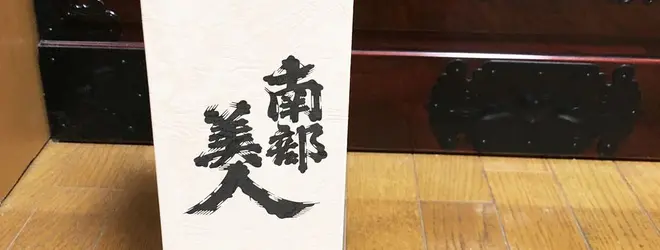 南部
美人